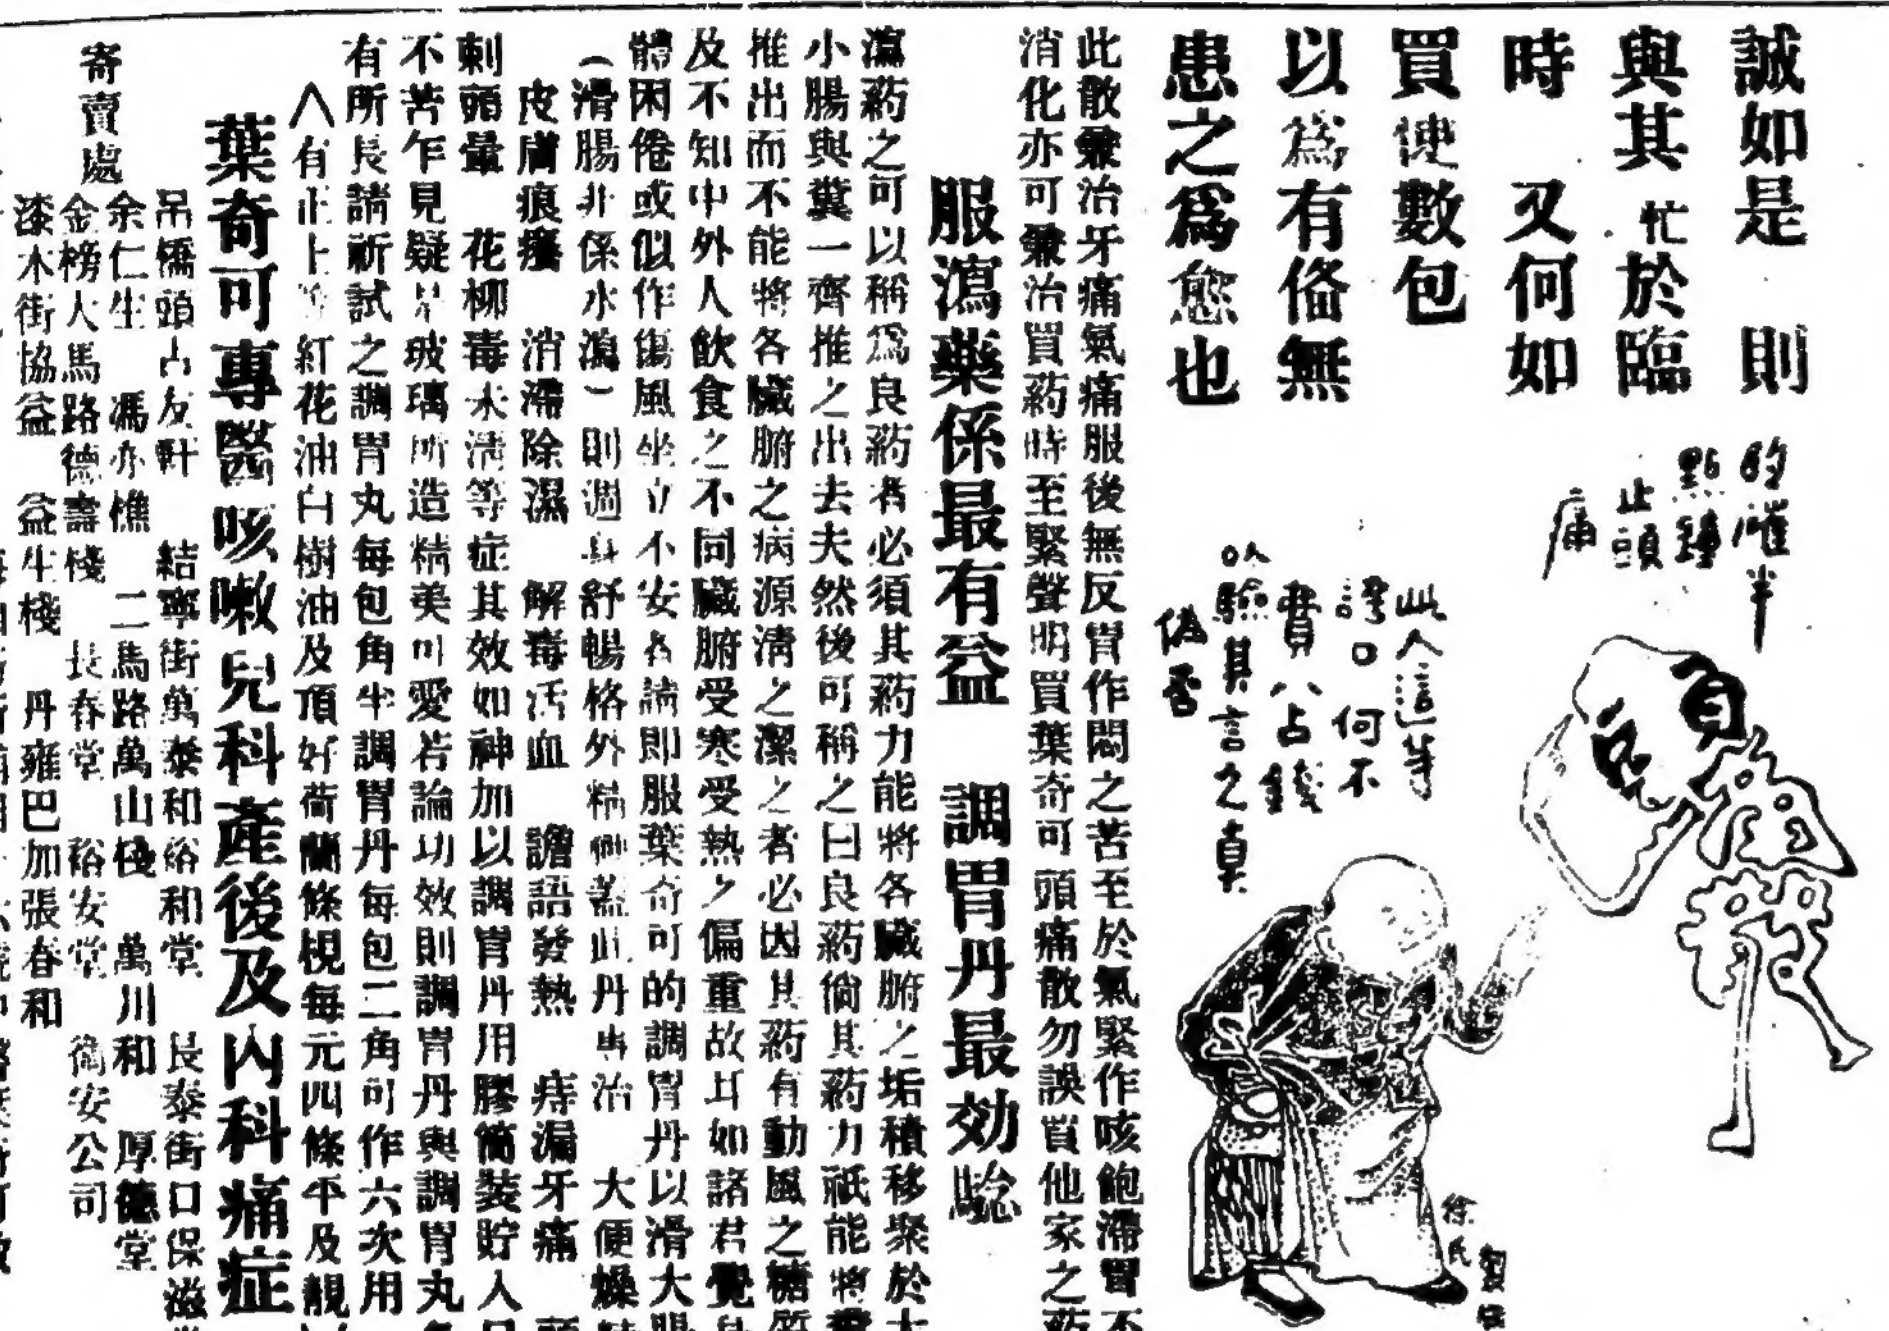 誠如是 則
與其忙於臨
時 又何如
買使數包
以為有備無
患之爲愈也
的確半
點鐘
止頭
痛
此人這等
誇口何不
費八占錢
以驗其言之真
偽否
徐氏
此散兼治牙痛氣痛服後無反胃作悶之苦至於氣緊作咳飽滯胃不
消化亦可兼治買葯時至緊聲明買葉奇可頭痛散勿誤買他家之葯
服瀉藥係最有益 調胃丹最効騐
瀉葯之可以稱為良葯者必須其葯力能將各臟腑之垢積移聚於大
小腸與糞一齊推之出去夫然後可稱之曰良葯倘其葯力祇能將糞
推出而不能將各臟腑之病源清之潔之者必因其葯有動風之糖質
及不知中外人飲食之不同臟腑受寒受熱之偏重故耳如諸君覺身
體困倦或似作傷風坐立不安者請即服葉奇可的調胃丹以滑大腸
(滑腸非係水瀉)則週身舒暢格外精神蓋此丹專治 大便燥
皮膚痕癢 消滯除濕 解毒活血 譫語發熱 痔漏牙痛 頭
刺頭暈 花柳毒未清等症其效如神加以調胃丹用膠筒裝貯人
不苦乍見疑是玻璃所造精美可愛若論功效則調胃丹與調胃丸
有所長請祈試之調胃丸每包角半調胃丹每包二角可作六次用
八有正上等紅花油白樹油及頂好荷蘭條梘每元四條平及靚
葉奇可專醫咳嗽兒科產後及內科痛症
寄賣處
吊橋頭占友軒 結寧街萬泰和裕和堂 長泰街口保滋
余仁生 馮亦樵 二馬路萬山棧 萬川和 厚德堂
金榜大馬路德壽棧 長春堂 裕安堂 僑安公司
漆木街協益 益生棧 丹雍巴加張春和